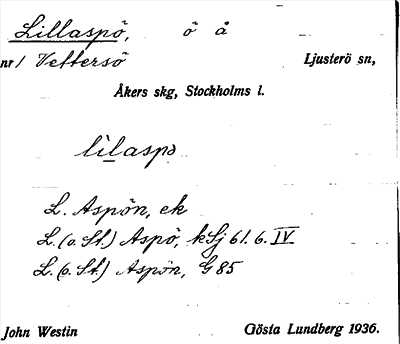 Lillaspö, ö å
nr/ Vettersö Ljusterö sn,
Åkers skg, Stockholms l.
lilaspə
L. Aspön, ek
L. (o. St.) Aspö, kSj 61. 6. IV
L. (o. St.) Aspön, G 85
John Westin Gösta Lundberg 1936.